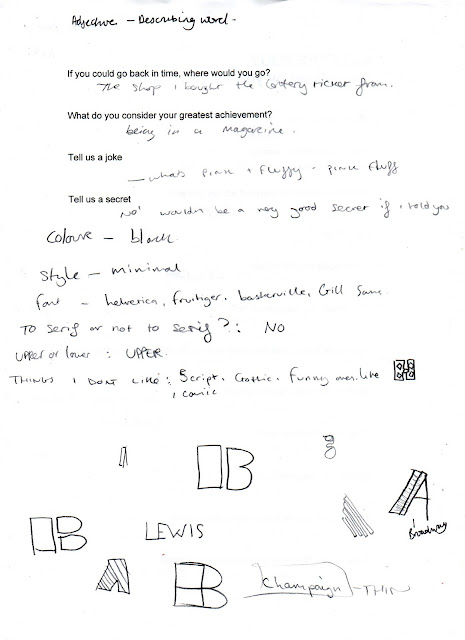 Adjective - Describing word.
If you could go back in time, where would you go?
The shop i bought the lottery ticket from.
What do you consider your greatest achievement?
being in a magazine.
Tell us a joke
- whats pink & fluffy - pink fluff
Tell us a secret
'NO' wouldn't be a very good secret if i told you
Colour - black
Style - minimal
font - helverica, fruitiger, baskerville, Gill Sans.
TO Serif or not to serif?: NO
UPPER or lower : UPPER.
THINGS I DONT LIKE: Script, Gothic, Funny ones. like
, comic
B
g
A
Broadway
B
LEWIS
A
B
Champaign - THIN